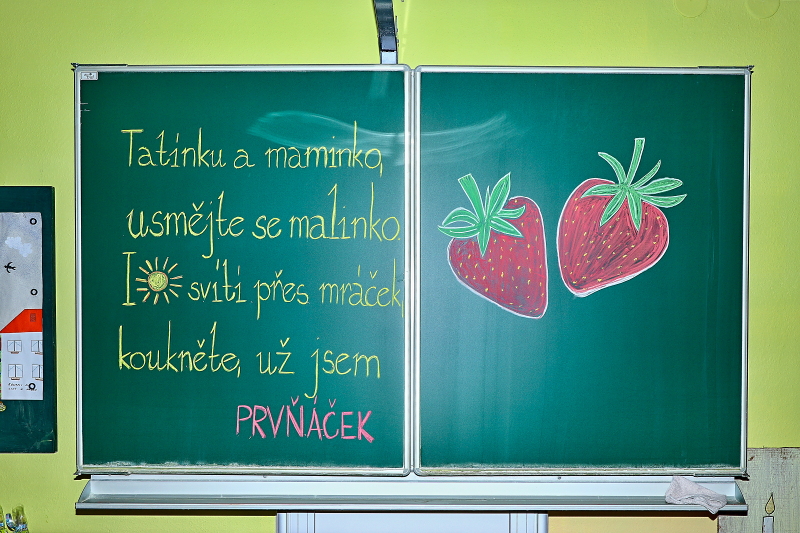 Tatínku a maminko,
usmějte se malinko.
I svítí přes mráček,
koukněte, už jsem
PRVŇÁČEK